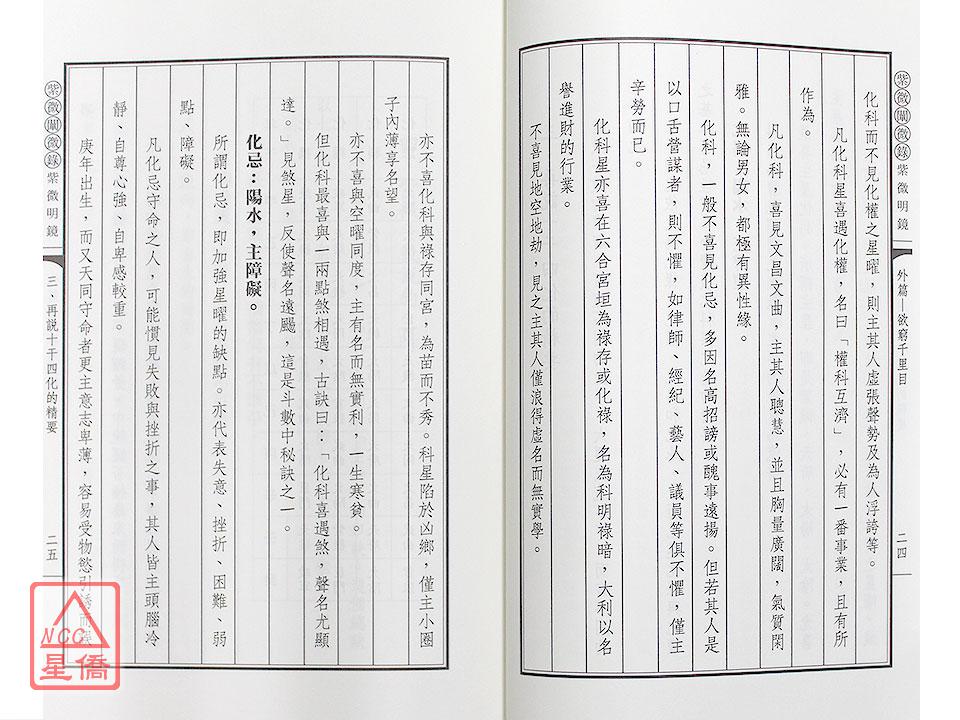 紫微闡微錄 紫微明鏡
外篇—欲窮千里目
二四
化科而不見化權之星曜，則主其人虛張聲勢及為人浮誇等。
凡化科星喜遇化權，名曰「權科互濟」，必有一番事業，且有所
作為。
凡化科，喜見文昌文曲，主其人聰慧，並且胸量廣闊，氣質閑
雅。無論男女，都極有異性緣。
化科，一般不喜見化忌，多因名高招謗或醜事遠揚。但若其人是
以口舌營謀者，則不懼，如律師、經紀、藝人、議員等俱不懼，僅主
辛勞而已。
化科星亦喜在六合宮垣為祿存或化祿，名為科明祿暗，大利以名
譽進財的行業。
不喜見地空地劫，見之主其人僅浪得虛名而無實學。
亦不喜化科與祿存同宮，為苗而不秀。科星陷於凶鄉，僅主小圈
子內薄享名望。
亦不喜與空曜同度，主有名而無實利，一生寒貧。
但化科最喜與一兩點煞相遇，古訣曰：「化科喜遇煞，聲名尤顯
達。」見煞星，反使聲名遠颺，這是斗數中秘訣之一。
化忌：陽水，主障礙。
所謂化忌，即加強星曜的缺點。亦代表失意、挫折、困難、弱
點、障礙。
凡化忌守命之人，可能慣見失敗與挫折之事，其人皆主頭腦冷
靜、自尊心強、自卑感較重。
庚年出生，而又天同守命者更主意志卑薄，容易受物慾引誘而
紫微闡微錄 紫微明鏡
三、再說十干四化的精要
二五
NCC
星僑